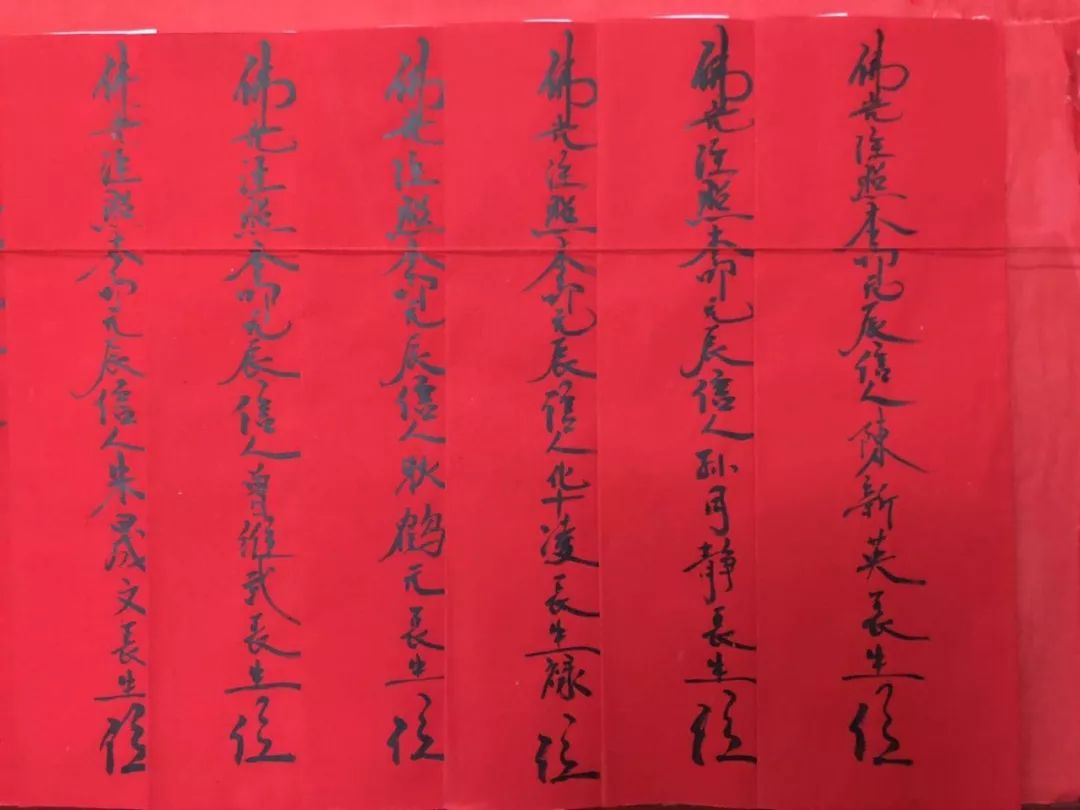 佛光注照本命元辰信人陳新英長生位
佛光注照本命元辰信人孙静長生位
佛光注照本命元辰信人华凌長生禄位
佛光注照本命元辰信人耿鹤元長生位
佛光注照本命元辰信人曾维武長生位
佛光注照本命元辰信人朱晟文長生位